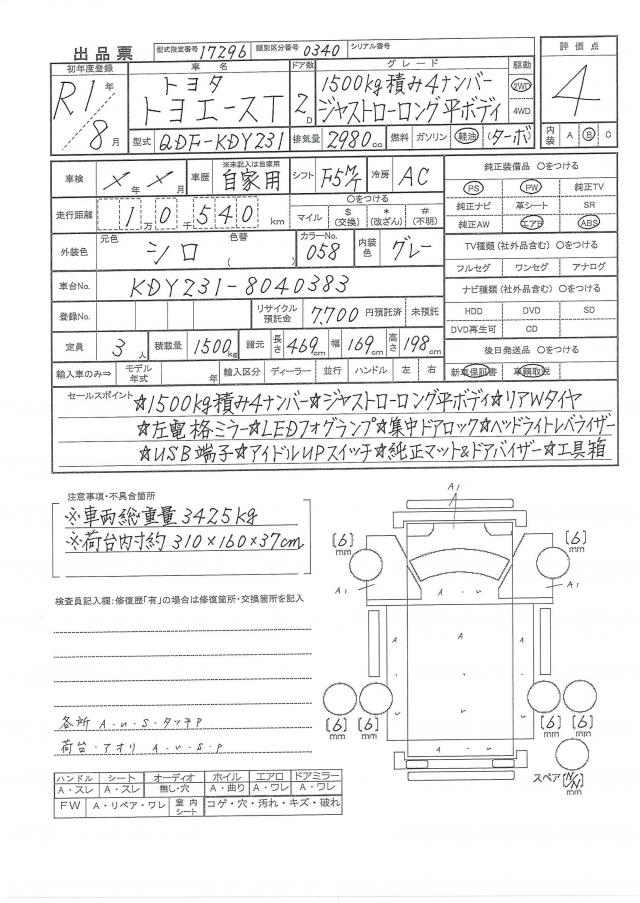 出品票 型式指定番号 17296 類別区分番号 0340 シリアル番号
初年度登録 車名 ドア数 グレード 駆動 評価点
R1年 トヨタ 2D 1500kg積み4ナンバー 2WD 4
8月 トヨエースT ジャストローロング平ボディ 4WD
型式 QDF-KDY231 排気量 2980cc 燃料 ガソリン 軽油 (ターボ) 内装 A B C
車検 ×年×月 車歴 ※未記入は自家用 自家用 シフト F5M/T 冷房 AC 純正装備品 ○をつける
PS PW 純正TV
走行距離 1万0千540km ○をつける マイル $(交換) *(改ざん) #(不明) 純正ナビ 革シート SR
純正AW エアB ABS
外装色 元色 シロ 色替 ( ) カラーNo. 058 内装色 グレー TV種類(社外品含む) ○をつける
フルセグ ワンセグ アナログ
車台No. KDY231-8040383 ナビ種類(社外品含む) ○をつける
登録No. リサイクル預託金 7,700 円預託済 未預託 HDD DVD SD
DVD再生可 CD
定員 3人 積載量 1500kg 諸元 長さ 469cm 幅 169cm 高さ 198cm 後日発送品 ○をつける
輸入車のみ⇒ モデル年式 年 輸入区分 ディーラー 並行 ハンドル 左 右 新車保証書 車輌取説
セールスポイント ☆1500kg積み4ナンバー☆ジャストローロング平ボディ☆リアWタイヤ
☆左電格ミラー☆LEDフォグランプ☆集中ドアロック☆ヘッドライトレバライザー
☆USB端子☆アイドルUPスイッチ☆純正マット&ドアバイザー☆工具箱
注意事項・不具合箇所
※車両総重量3425kg
※荷台内寸約310×160×37cm
検査員記入欄:修復歴「有」の場合は修復箇所・交換箇所を記入
各所 A・U・S・タッチP
荷台・アオリ A・U・S・P
A1
[6]mm [6]mm
A1 A・U A1
A A A
[6]mm [6]mm [6]mm [6]mm
スペア [N/N]mm
ハンドル シート オーディオ ホイル エアロ ドアミラー
A・スレ A・スレ 無し・穴 A・曲り A・ワレ A・ワレ
FW A・リペア・ワレ 室内シート コゲ・穴・汚れ・キズ・破れ